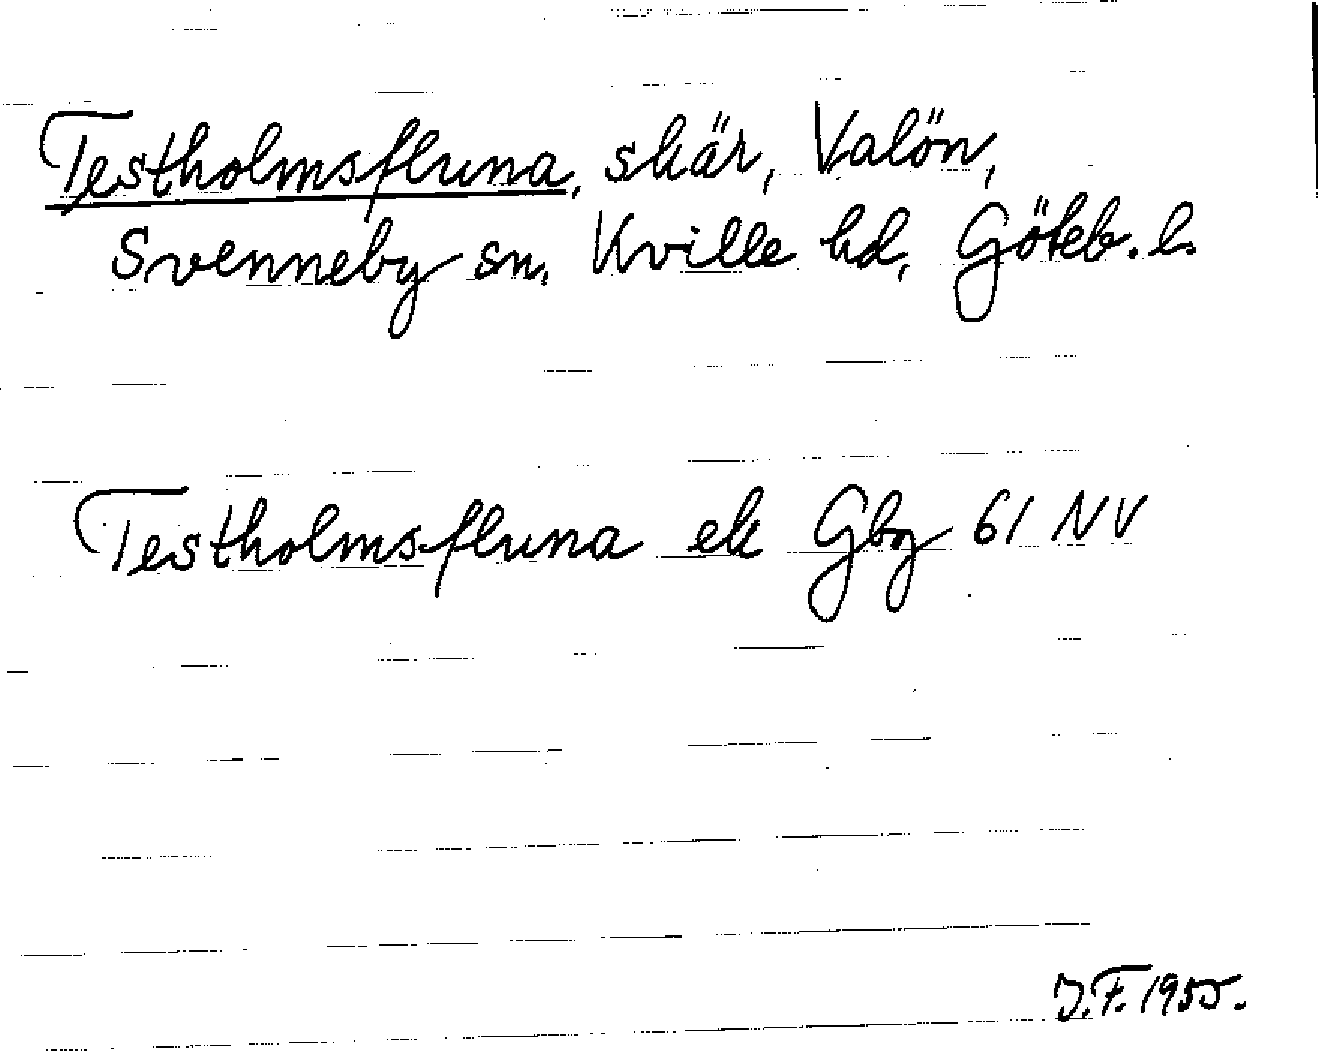 Testholmsfluna, skär, Valön,
Svenneby sn, Kville hd, Göteb. l.
Testholmsfluna ek Gbg 61 NV
J.F. 1955.